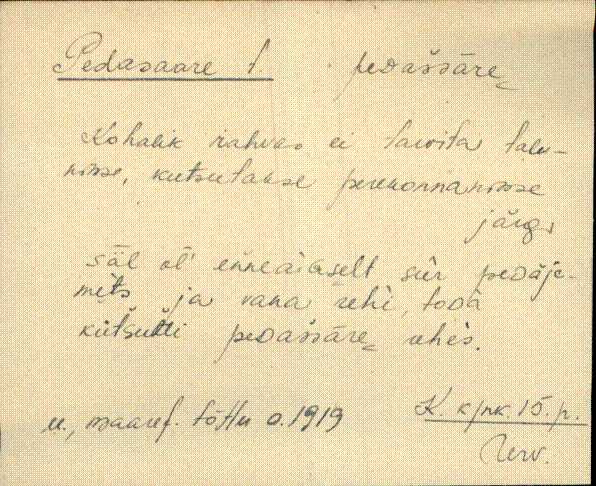 Pedasaare t. pedaššäre
Kohalik rahvas ei tarvita talu-
nime, kutsutakse perekonnanime
järg.
säl ol' enneaigselt suur pedäje-
mets ja vana rehi, toda
kutsutti pedaššäre rehes.
u., maaref. tõttu a. 1919
K. kpnk. 15. p.